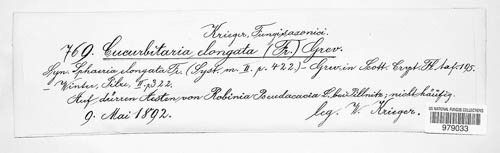 Krieger, Fungi saxonici.
769. Cucurbitaria elongata (Fr.) Grev.
Syn. Sphaeria elongata Fr. (Syst. m. II. p. 422) – Grev. in Scott. Crypt. Fl. taf. 195.
Winter, Pilze, II. p. 322.
Auf dürren Aesten von Robinia Pseudacacia L. bei Pillnitz; nicht häufig.
9. Mai 1892. leg. W. Krieger.
US NATIONAL FUNGUS COLLECTIONS
979033